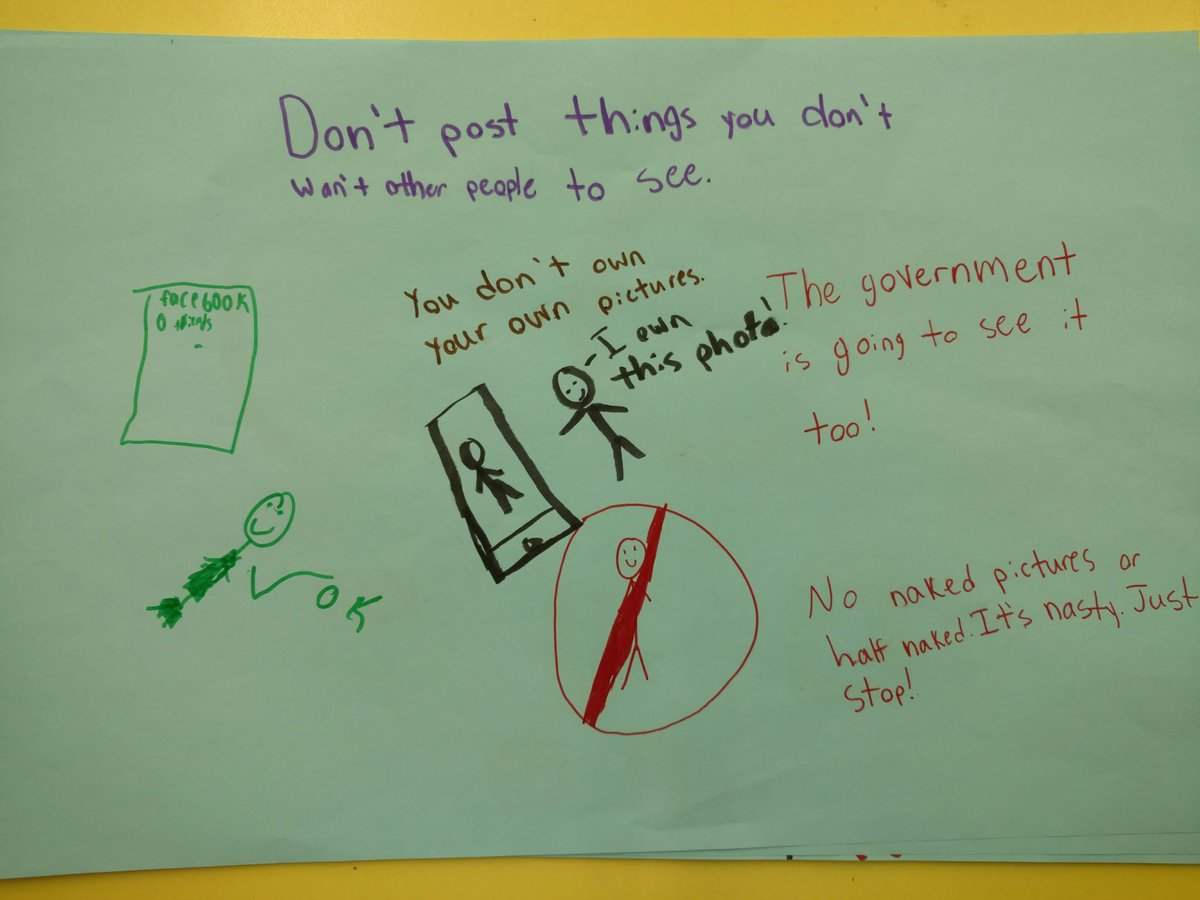 Don't post things you don't
wan't other people to see.
You don't own
your own pictures.
I own
this photo!
The government
is going to see it
too!
face600K
0
OK
No naked pictures or
half naked. It's nasty. Just
stop!